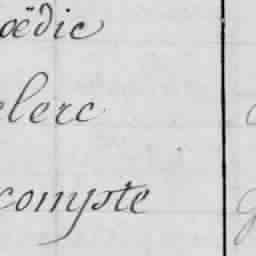 oëdic
clerc
compte